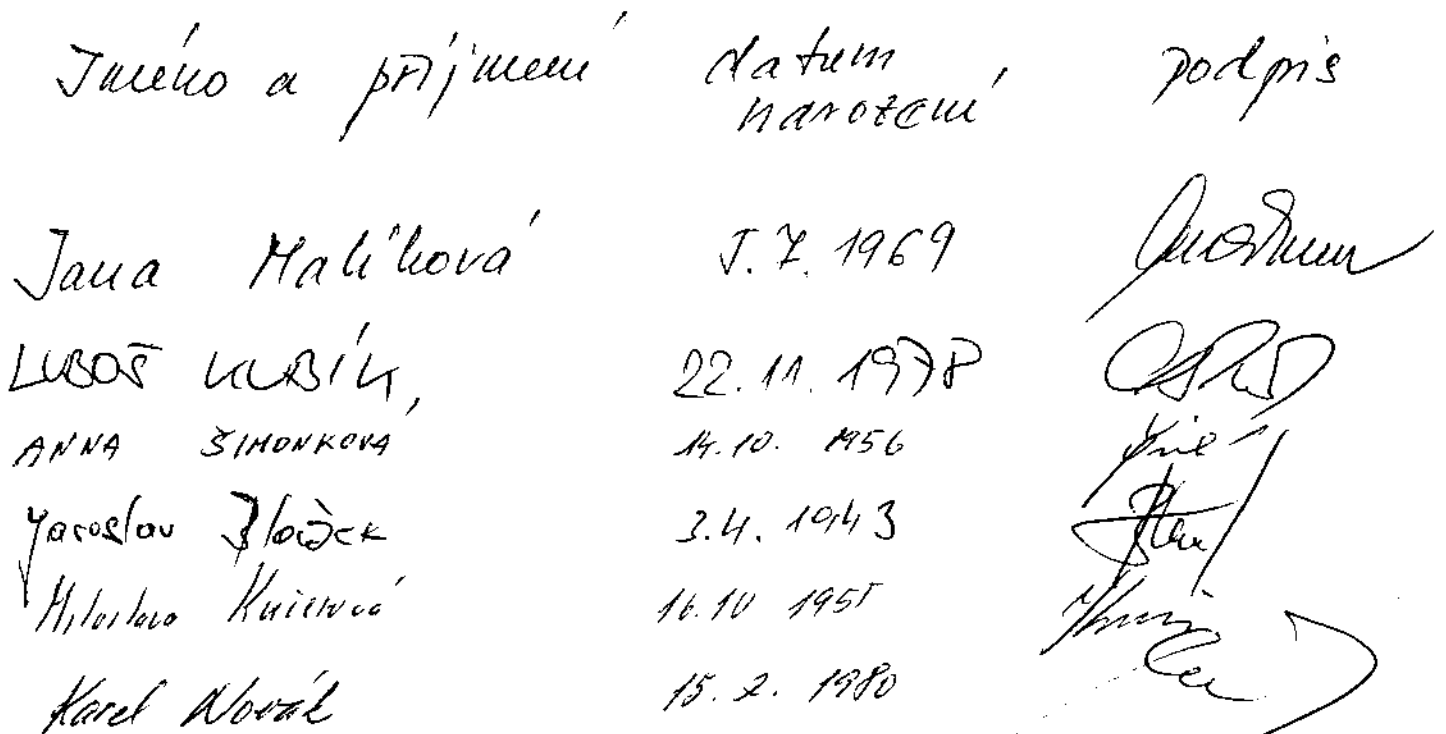 Jméno a příjmení datum narození podpis
Jana Malíková 5.7.1969
LUBOŠ KUBÍK 22.11.1978
ANNA ŠIMONKOVÁ 14.10. 1956
Jaroslav 3.4.1943
Miloslava 16.10 1955
Karel Novák 15.2.1980